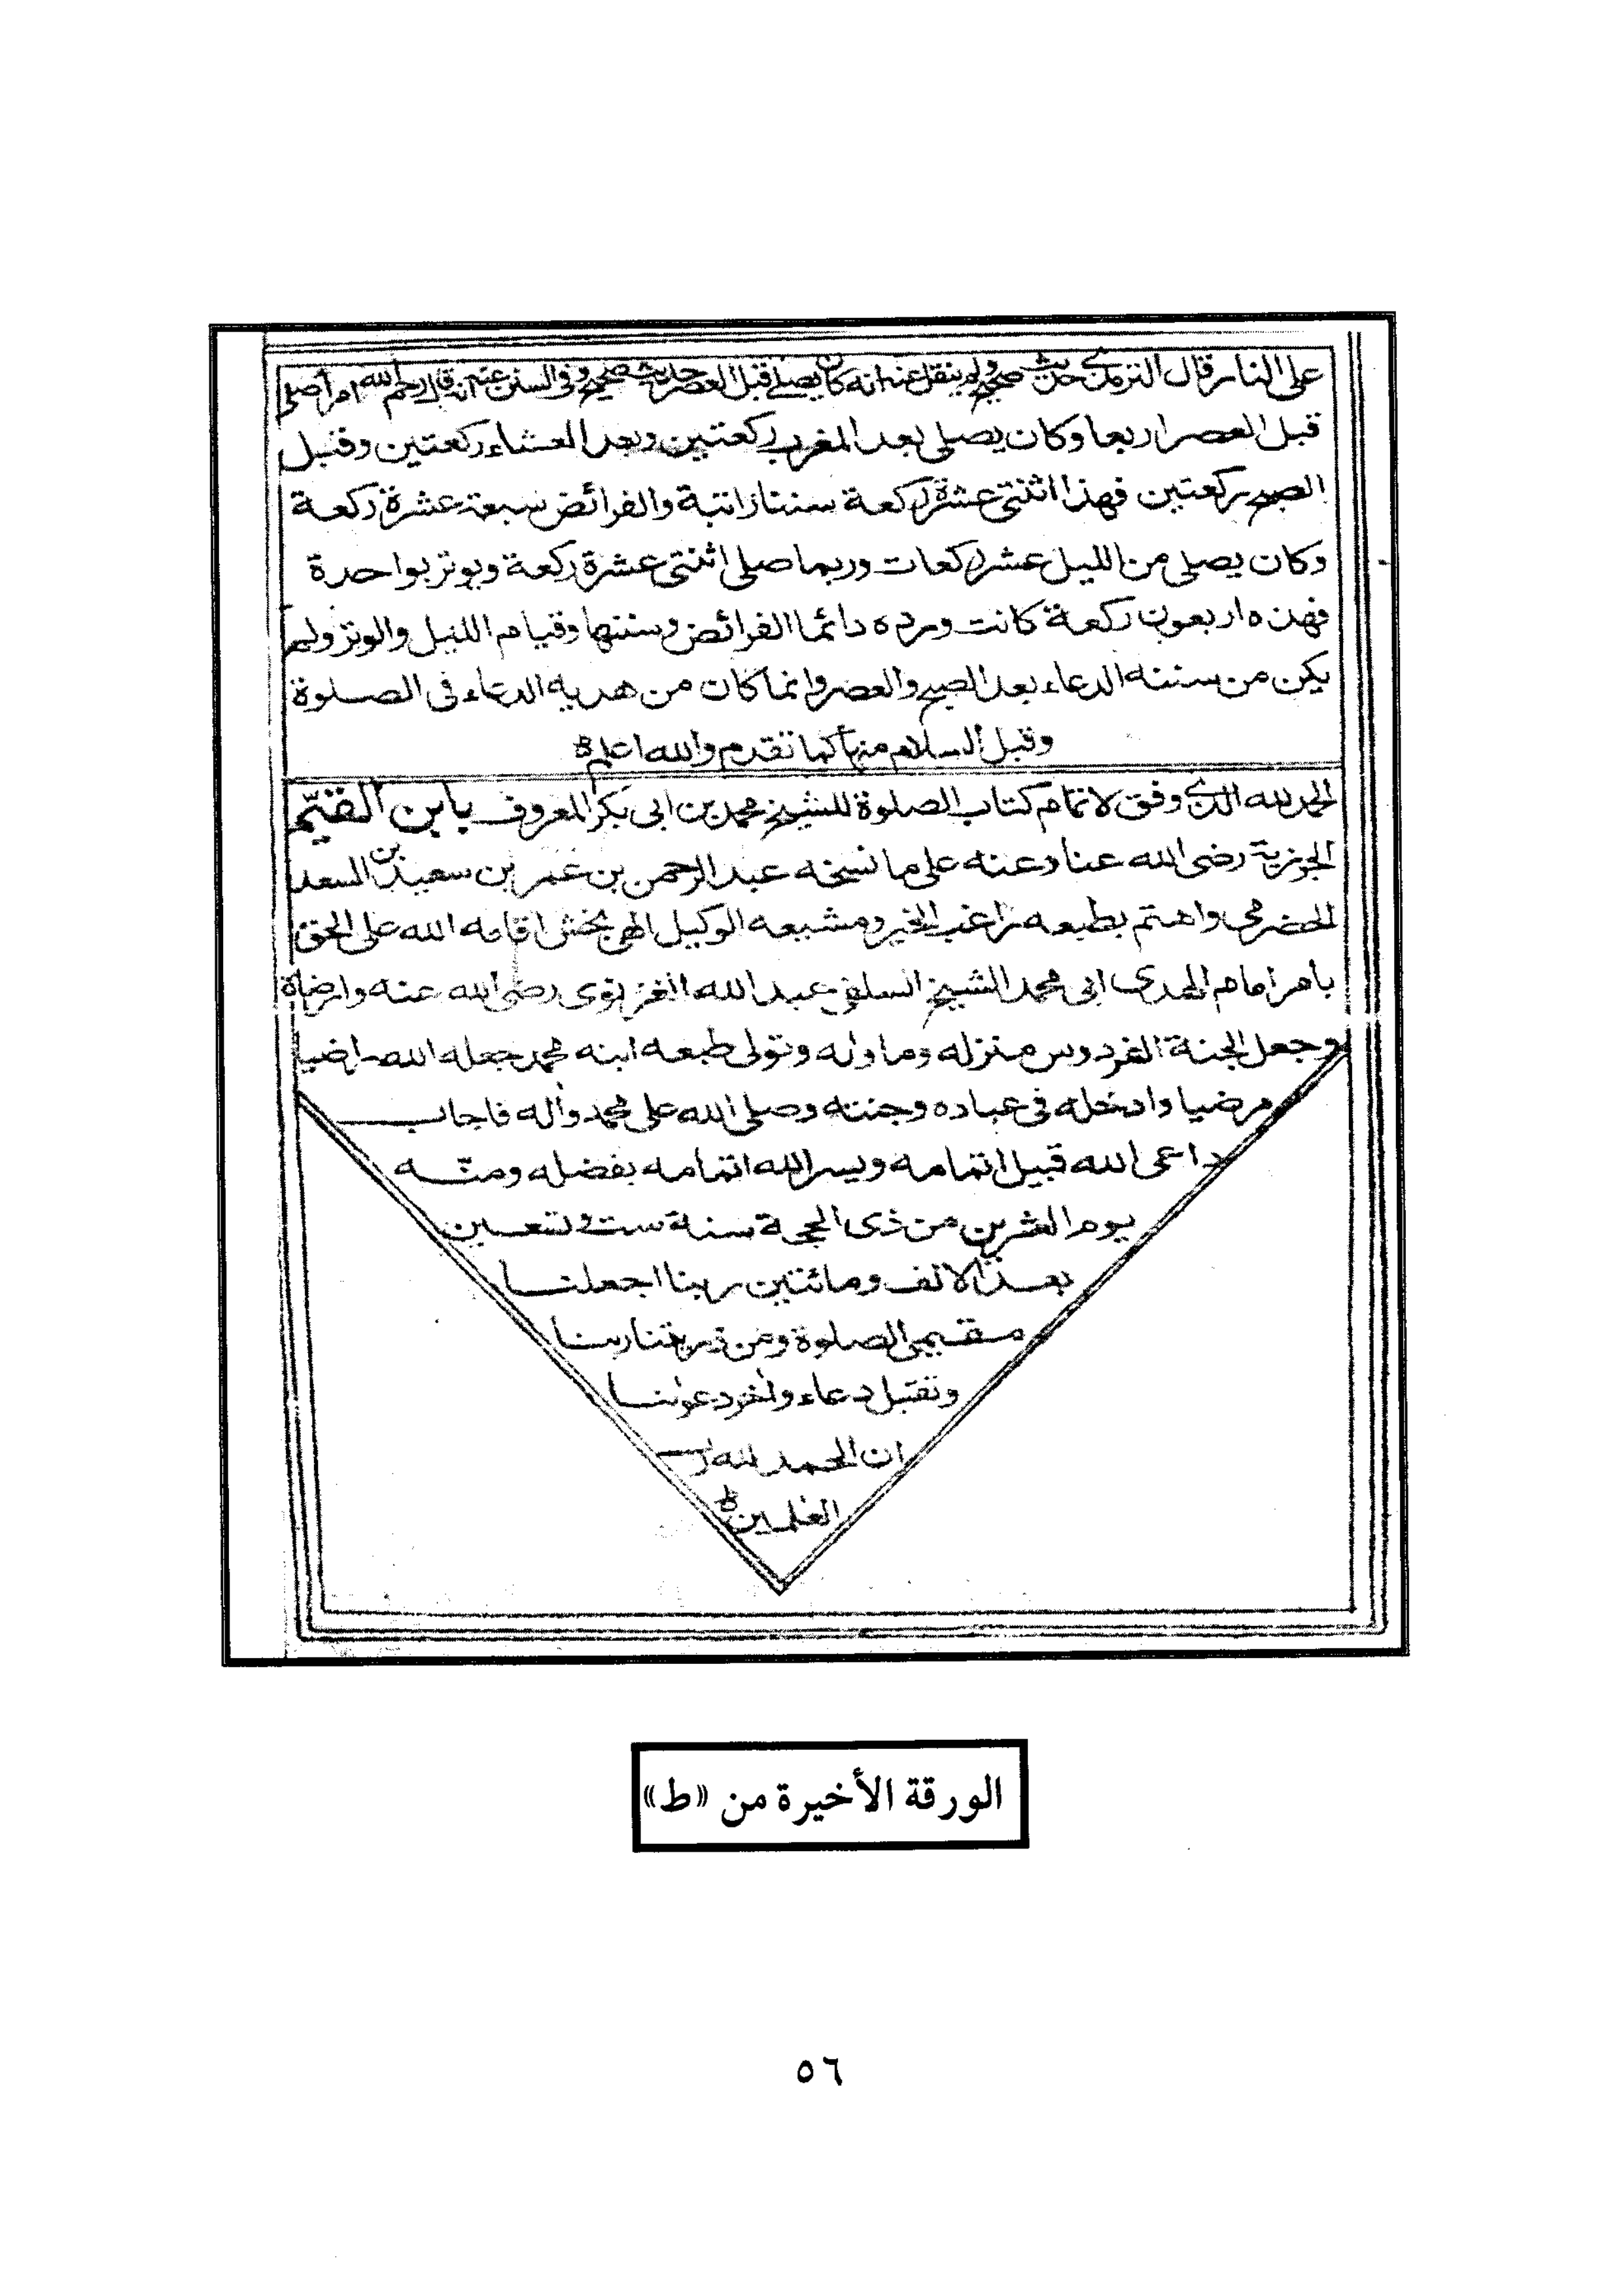 على النار قال الترمذي حديث صحيح ولم ينقل عنه انه كان يصلي قبل العصر حديث صحيح وفي السنن عنه انه قال رحم الله امرأ صلى
قبل العصر اربعا وكان يصلي بعد المغرب ركعتين وبعد العشاء ركعتين وقبل
الصبح ركعتين فهذا اثنتى عشرة ركعة سننا راتبة والفرائض سبعة عشرة ركعة
وكان يصلى من الليل عشر ركعات وربما صلى اثنتى عشرة ركعة ويوتر بواحدة
فهذه اربعون ركعة كانت ورده دائما الفرائض وسننها وقيام الليل والوتر ولم
يكن من سنته الدعاء بعد الصبح والعصر وانما كان من هديه الدعاء فى الصلوة
وقبل السلام منها كما تقدم والله اعلم
الحمد لله الذى وفق لاتمام كتاب الصلوة للشيخ محمد بن ابى بكر المعروف بابن القيم
الجوزية رضى الله عنا وعنه على ما نسخه عبد الرحمن بن عمر بن سعيد بن السعد
الحضرمى واهتم بطبعه راغب الخير ومشيعه الوكيل الهى بخش اقامه الله على الحق
بامر امام الهدى ابى محمد الشيخ السلفى عبد الله الغزنوى رضى الله عنه وارضاه
وجعل الجنة الفردوس منزله وماواه وتولى طبعه ابنه محمد جعله الله راضيا
مرضيا وادخله فى عباده وجنته وصلى الله على محمد وآله فاجاب
داعى الله قبيل اتمامه ويسر الله اتمامه بفضله ومنّه
يوم العشرين من ذى الحجة سنة ست وتسعين
بعد الالف ومائتين ربنا اجعلنا
مقيمى الصلوة ومن ذريتنا ربنا
وتقبل دعاء وآخر دعوٰنا
ان الحمد لله رب
العٰلمين
الورقة الأخيرة من «ط»
٥٦